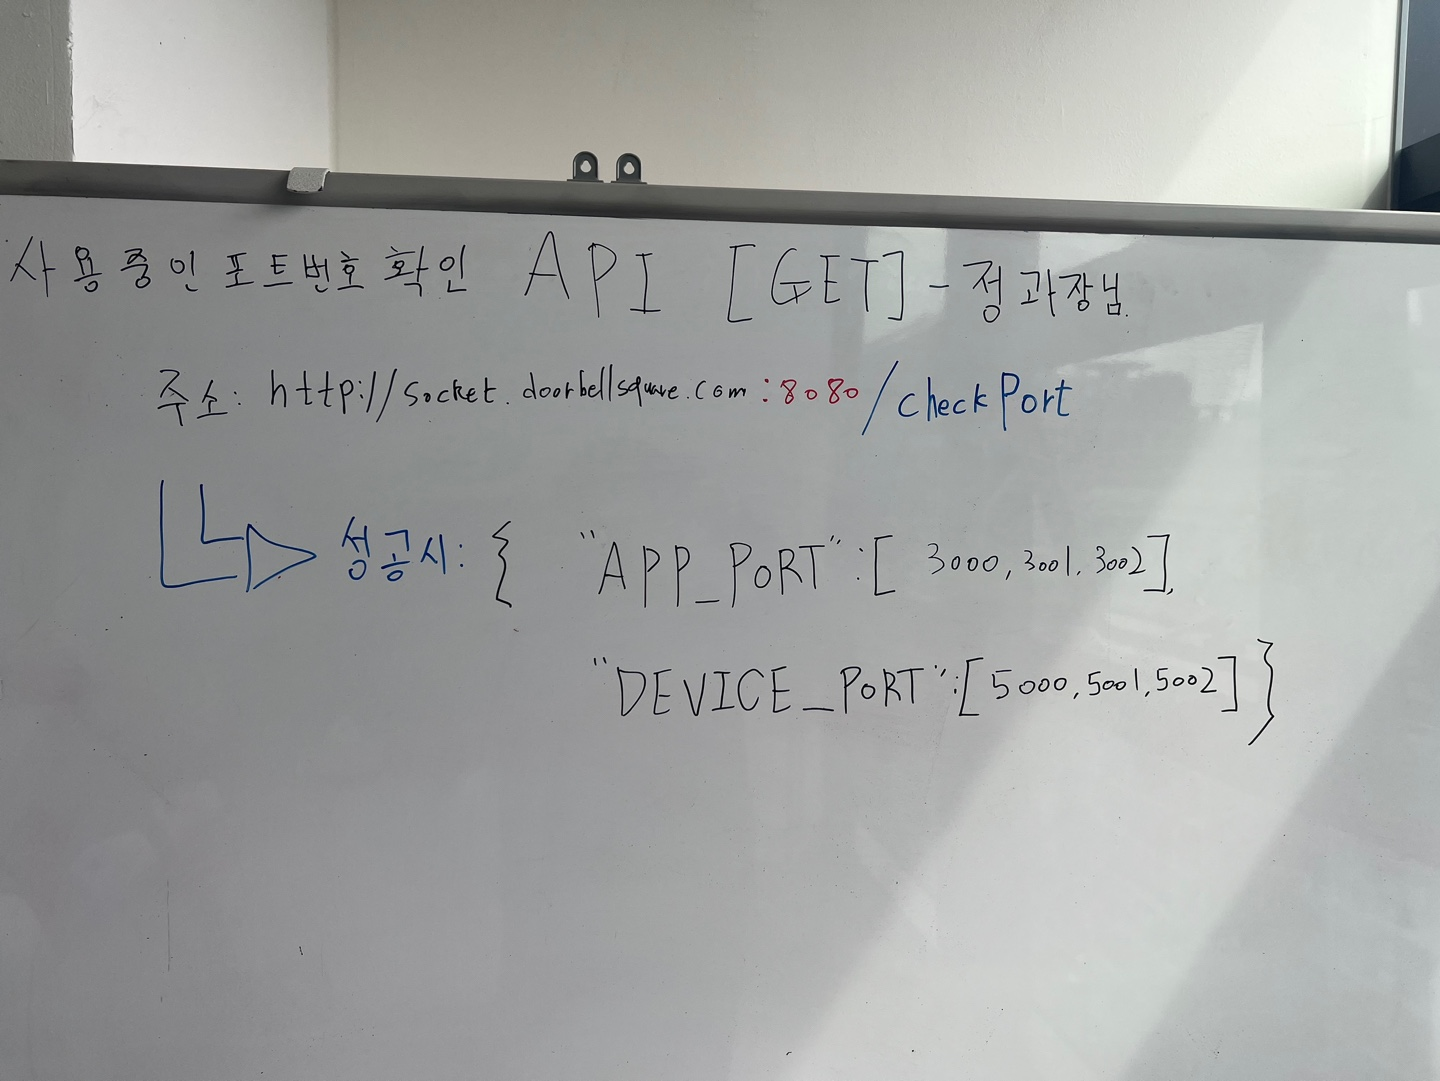 사용중인 포트번호 확인 API [GET] - 정과장님.
주소: http://socket.doorbellsquare.com:8080/checkPort
성공시: { "APP_PORT":[ 3000, 3001, 3002],
"DEVICE_PORT":[5000, 5001, 5002] }